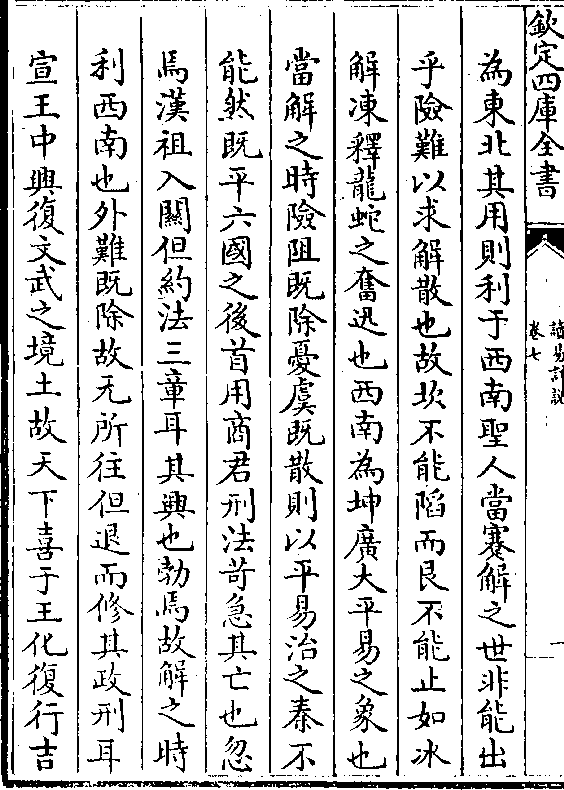 欽定四庫全書
讀易詳說
卷七
為東北其用則利于西南聖人當蹇解之世非能出
乎險難以求解散也故坎不能陷而艮不能止如冰
解凍釋龍蛇之奮迅也西南為坤廣大平易之象也
當解之時險阻既除憂虞既散則以平易治之秦不
能然既平六國之後首用商君刑法苛急其亡也忽
焉漢祖入關但約法三章耳其興也勃焉故解之時
利西南也外難既除故无所往但退而修其政刑耳
宣王中興復文武之境土故天下喜于王化復行吉